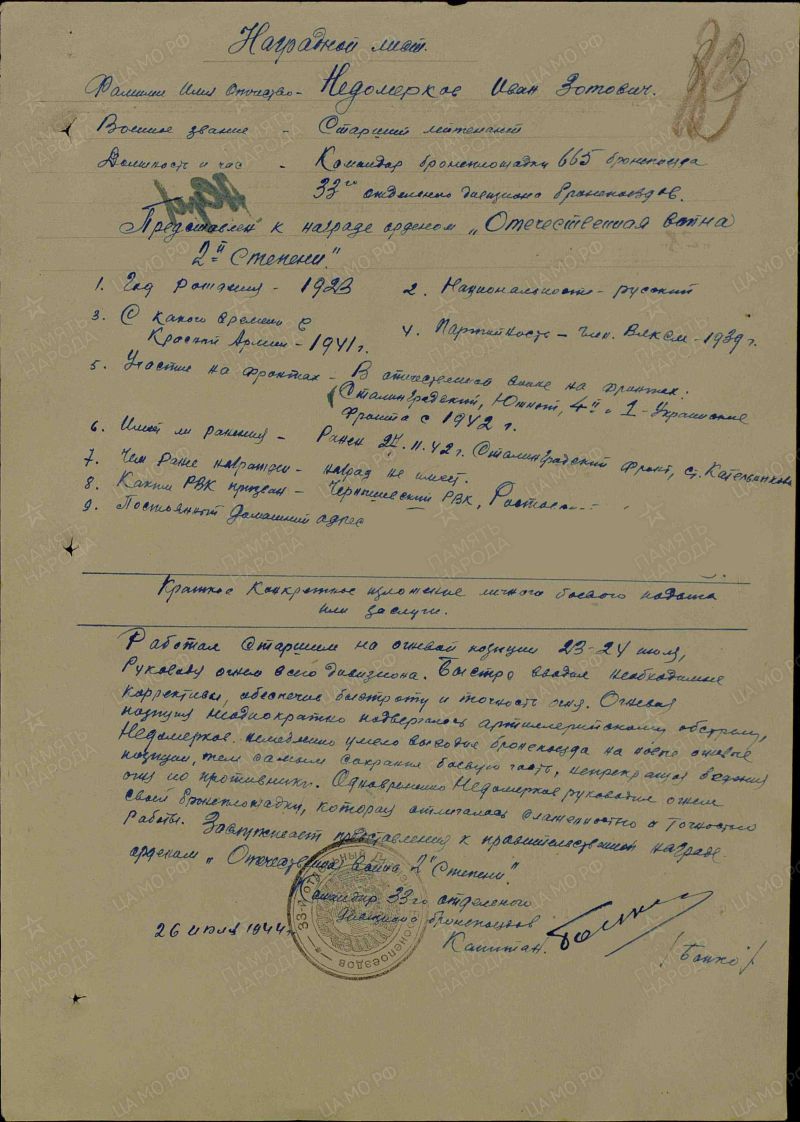 Наградной лист.
Фамилия Имя Отчество - Недомерков Иван Зотович.
Военное звание - Старший лейтенант
Должность и час - Командир бронеплощадки 665 бронепоезда
33го отдельного дивизиона бронепоездов.
Представлен к награде орденом „Отечественная война
2й Степени."
1. Год рождения - 1923
2. Национальность - русский
3. С какого времени в
Красной Армии - 1941 г.
4. Партийность - Член ВЛКСМ - 1939 г.
5. Участие на фронтах - В отечественной войне на фронтах:
Сталинградский, Южный, 4й и 1-Украинские
фронта с 1942 г.
6. Имеет ли ранения - Ранен 11.42 г. Сталинградский фронт, ст. Котельниково
7. Чем ранее награжден - наград не имеет.
8. Каким РВК призван - РВК,
9. Постоянный домашний адрес
Краткое конкретное изложение личного боевого подвига
или заслуги.
Работал старшим на огневой позиции 23-24 июля,
Руководя огнем всего дивизиона. Быстро вводил необходимые
коррективы, обеспечив быстроту и точность огня. Огневая
позиция неоднократно подвергалась артиллерийскому обстрелу,
Недомерков немедленно умело выводил бронепоезда на новые огневые
позиции, тем самым сохранил боевую часть, непрекращая ведения
огня по противнику. Одновременно Недомерков руководил огнем
своей бронеплощадки, которая отличалась слаженностью и точностью
работы. Заслуживает представления к правительственной награде
орденом „Отечественная война 2й Степени."
Командир 33го отдельного
дивизиона бронепоездов
Капитан
/Бойко/
26 июля 1944 г.
33-й отдельный
бронепоездов
ЦАМО.РФ
ПАМЯТЬ
НАРОДА